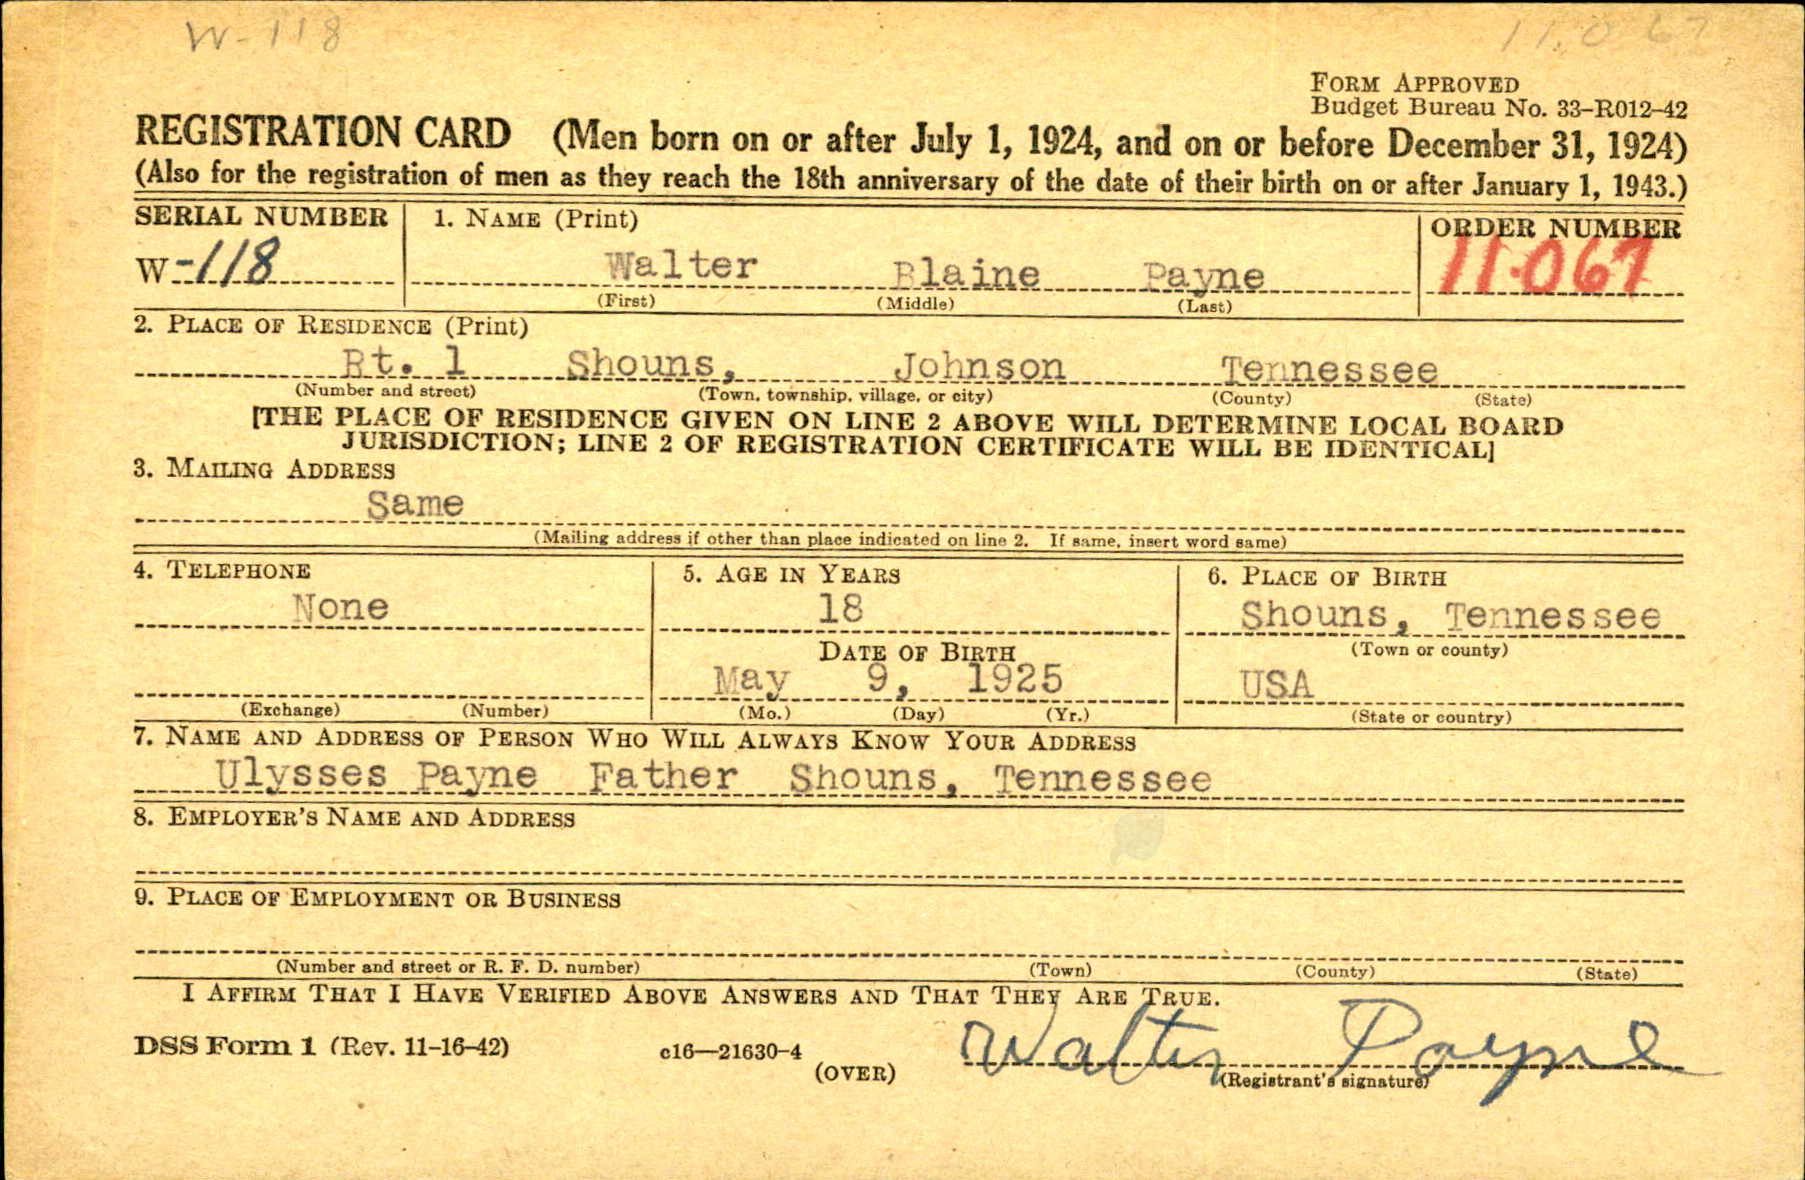 W-118 11.067
FORM APPROVED
Budget Bureau No. 33-R012-42
REGISTRATION CARD (Men born on or after July 1, 1924, and on or before December 31, 1924)
(Also for the registration of men as they reach the 18th anniversary of the date of their birth on or after January 1, 1943.)
SERIAL NUMBER 1. NAME (Print) ORDER NUMBER
W-118 Walter Blaine Payne 11.067
(First) (Middle) (Last)
2. PLACE OF RESIDENCE (Print)
Rt. 1 Shouns, Johnson Tennessee
(Number and street) (Town, township, village, or city) (County) (State)
[THE PLACE OF RESIDENCE GIVEN ON LINE 2 ABOVE WILL DETERMINE LOCAL BOARD
JURISDICTION; LINE 2 OF REGISTRATION CERTIFICATE WILL BE IDENTICAL]
3. MAILING ADDRESS
Same
(Mailing address if other than place indicated on line 2. If same, insert word same)
4. TELEPHONE 5. AGE IN YEARS 6. PLACE OF BIRTH
None 18 Shouns, Tennessee
DATE OF BIRTH (Town or county)
May 9, 1925 USA
(Exchange) (Number) (Mo.) (Day) (Yr.) (State or country)
7. NAME AND ADDRESS OF PERSON WHO WILL ALWAYS KNOW YOUR ADDRESS
Ulysses Payne Father Shouns, Tennessee
8. EMPLOYER'S NAME AND ADDRESS
9. PLACE OF EMPLOYMENT OR BUSINESS
(Number and street or R. F. D. number) (Town) (County) (State)
I AFFIRM THAT I HAVE VERIFIED ABOVE ANSWERS AND THAT THEY ARE TRUE.
DSS Form 1 (Rev. 11-16-42) c16—21630-4 (OVER) Walter Payne
(Registrant's signature)